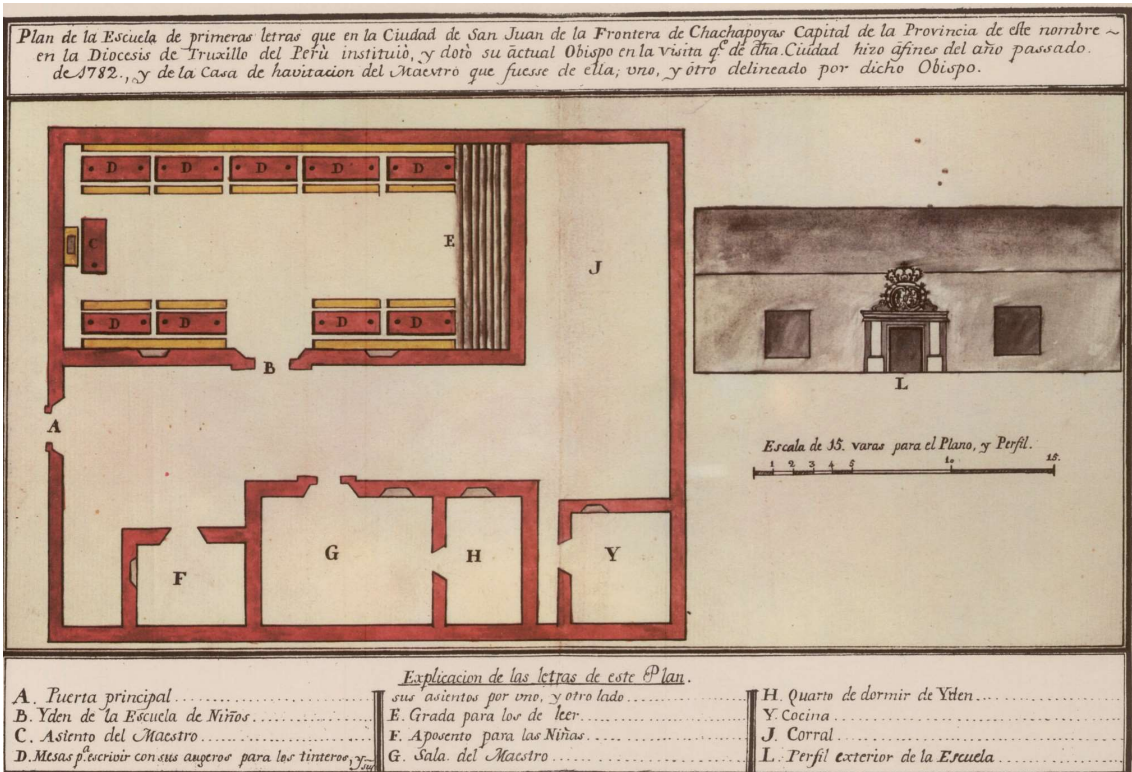 Plan de la Escuela de primeras letras que en la Ciudad de San Juan de la Frontera de Chachapoyas Capital de la Provincia de este nombre ~
en la Diocesis de Truxillo del Perù instituiò, y dotò su actual Obispo en la visita q.e de dha. Ciudad hizo afines del año passado.
de 1782., y de la Casa de havitacion del Maestro que fuesse de ella; uno, y òtro delineado por dicho Obispo.
D D D D D
C
E
J
D D D D
B
A
L
Escala de 15. varas para el Plano, y Perfil.
1 2 3 4 5 10 15.
G
H
Y
F
Explicacion de las letras de este Plan.
A. Puerta principal
B. Yden de la Escuela de Niños
C. Asiento del Maestro
D. Mesas p.a escrivir con sus augeros para los tinteros, y sus
sus asientos por uno, y otro lado
E. Grada para los de leer
F. Aposento para las Niñas
G. Sala del Maestro
H. Quarto de dormir de Yden
Y. Cocina
J. Corral
L. Perfil exterior de la Escuela